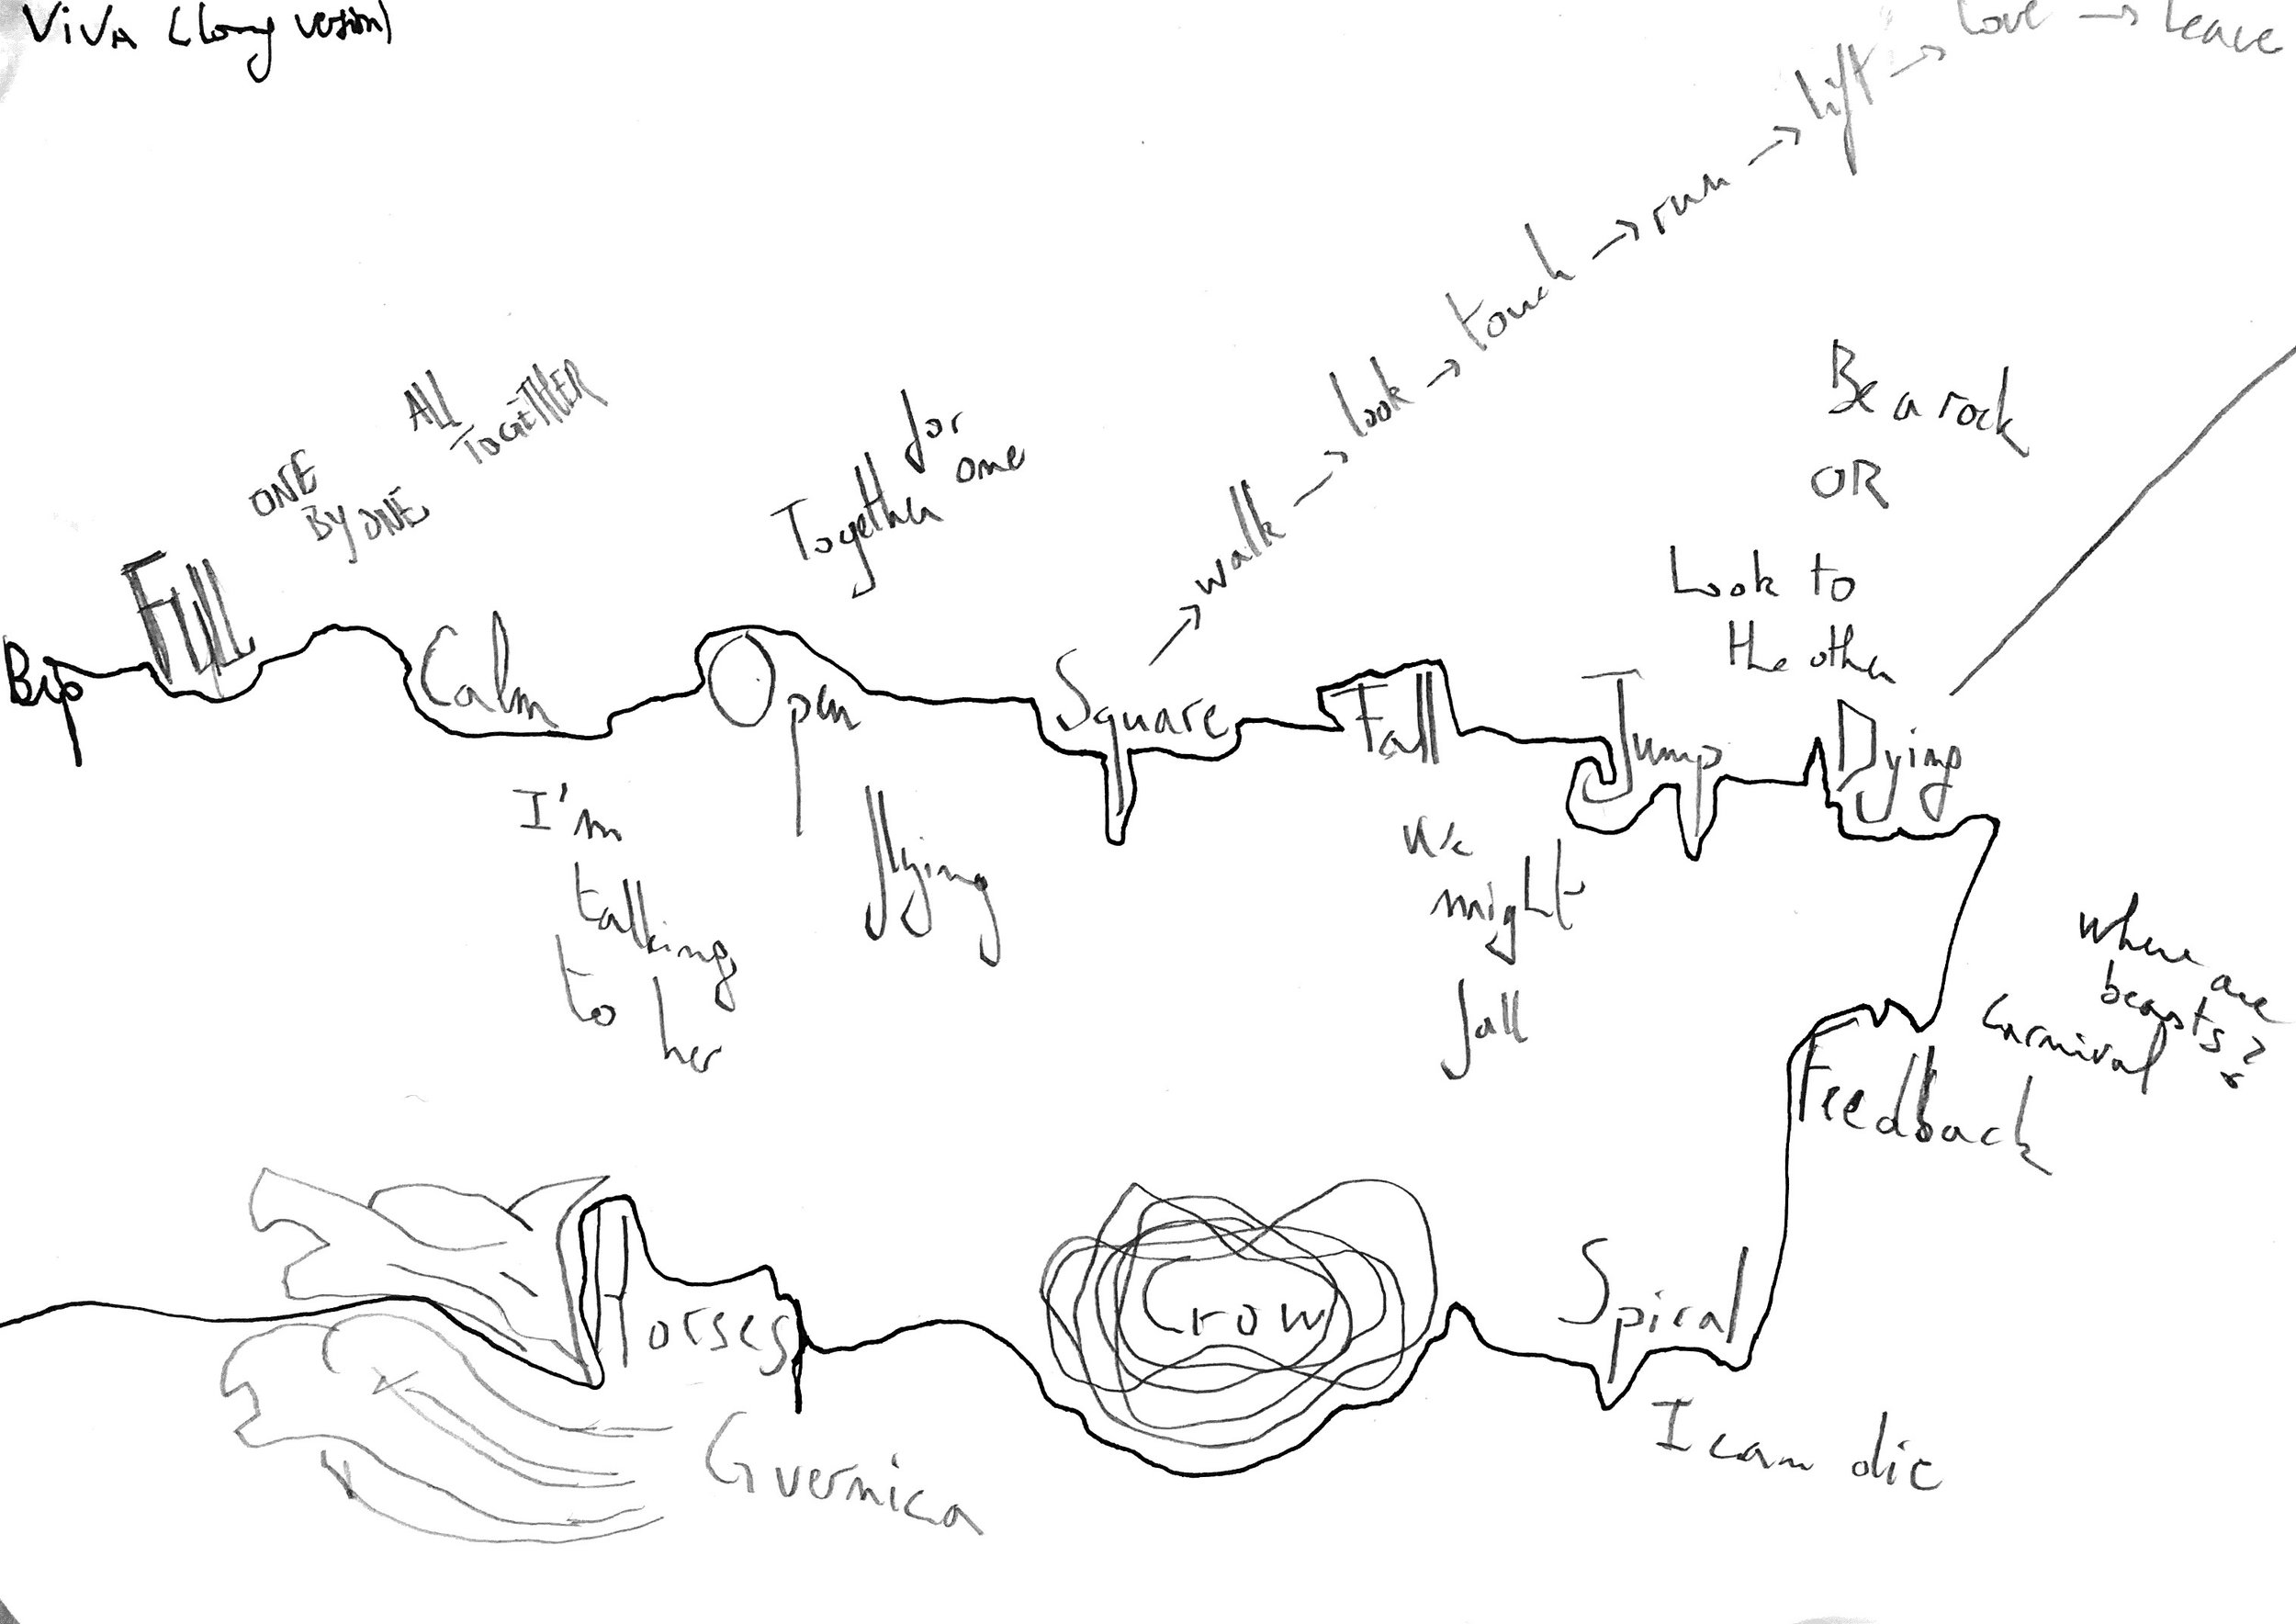 ViVA (long version)
walk → look → touch → run → lift → love → leave
ONE
BY ONE
ALL
TOGETHER
Together
for
one
Be a rock
OR
Look to
the other
Bip
Full
Calm
Open
Square
Fall
Jump
Dying
I'm
talking
to
her
flying
We
might
fall
Where are
beasts?
Carnival
Feedback
Spiral
I can die
Crow
Horses
Guernica